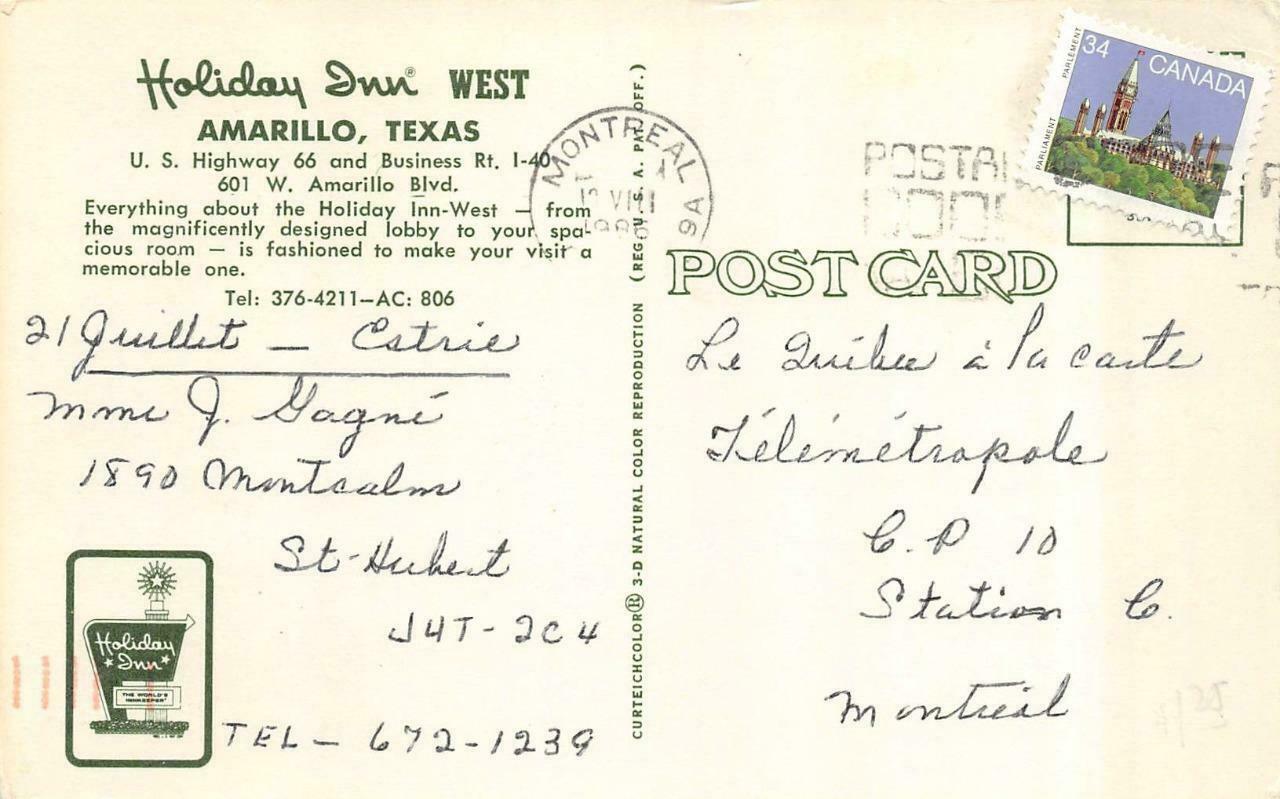 Holiday Inn® WEST
AMARILLO, TEXAS
U. S. Highway 66 and Business Rt. I-40
601 W. Amarillo Blvd.
Everything about the Holiday Inn-West — from
the magnificently designed lobby to your spa-
cious room — is fashioned to make your visit a
memorable one.
Tel: 376-4211—AC: 806
21 Juillet — Estrie
Mme J. Gagné
1890 Montcalm
St-Hubert
J4T-2C4
TEL — 672-1239
Holiday
Inn
THE WORLD'S
INNKEEPER
CURTEICHCOLOR® 3-D NATURAL COLOR REPRODUCTION (REG. U. S. A. PAT. OFF.)
MONTREAL
VIII
9A
POSTAL
CODE
34
CANADA
PARLIAMENT
PARLEMENT
POST CARD
Le Québec à la carte
Télémétropole
C.P 10
Station C.
Montréal